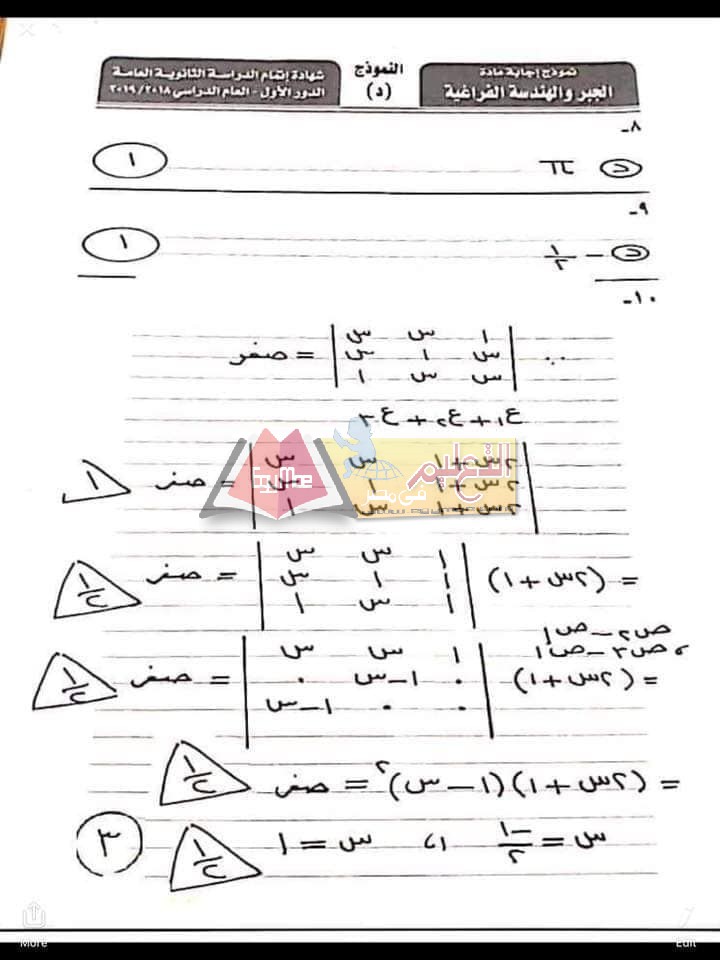 نموذج إجابة مادة
الجبر والهندسة الفراغية
النموذج
(د)
شهادة إتمام الدراسة الثانوية العامة
الدور الأول - العام الدراسي ٢٠١٨/٢٠١٩
٨-
د π ١
٩-
د - ١/٢ ١
١٠-
∵ | ١ س س |
| س ١ س | = صفر
| س س ١ |
ع١ + ع٢ + ع٣
| ٢س+١ س س |
| ٢س+١ ١ س | = صفر ١
| ٢س+١ س ١ |
التعليم في مصر
| ١ س س |
= (٢س+١) | ١ ١ س | = صفر ١/٢
| ١ س ١ |
ص٢ - ص١
، ص٣ - ص١
| ١ س س |
= (٢س+١) | ٠ ١-س ٠ | = صفر ١/٢
| ٠ ٠ ١-س |
= (٢س+١)(١-س)٢ = صفر ١/٢
س = -١/٢ ، س = ١ ١/٢ ٣
More
Edit